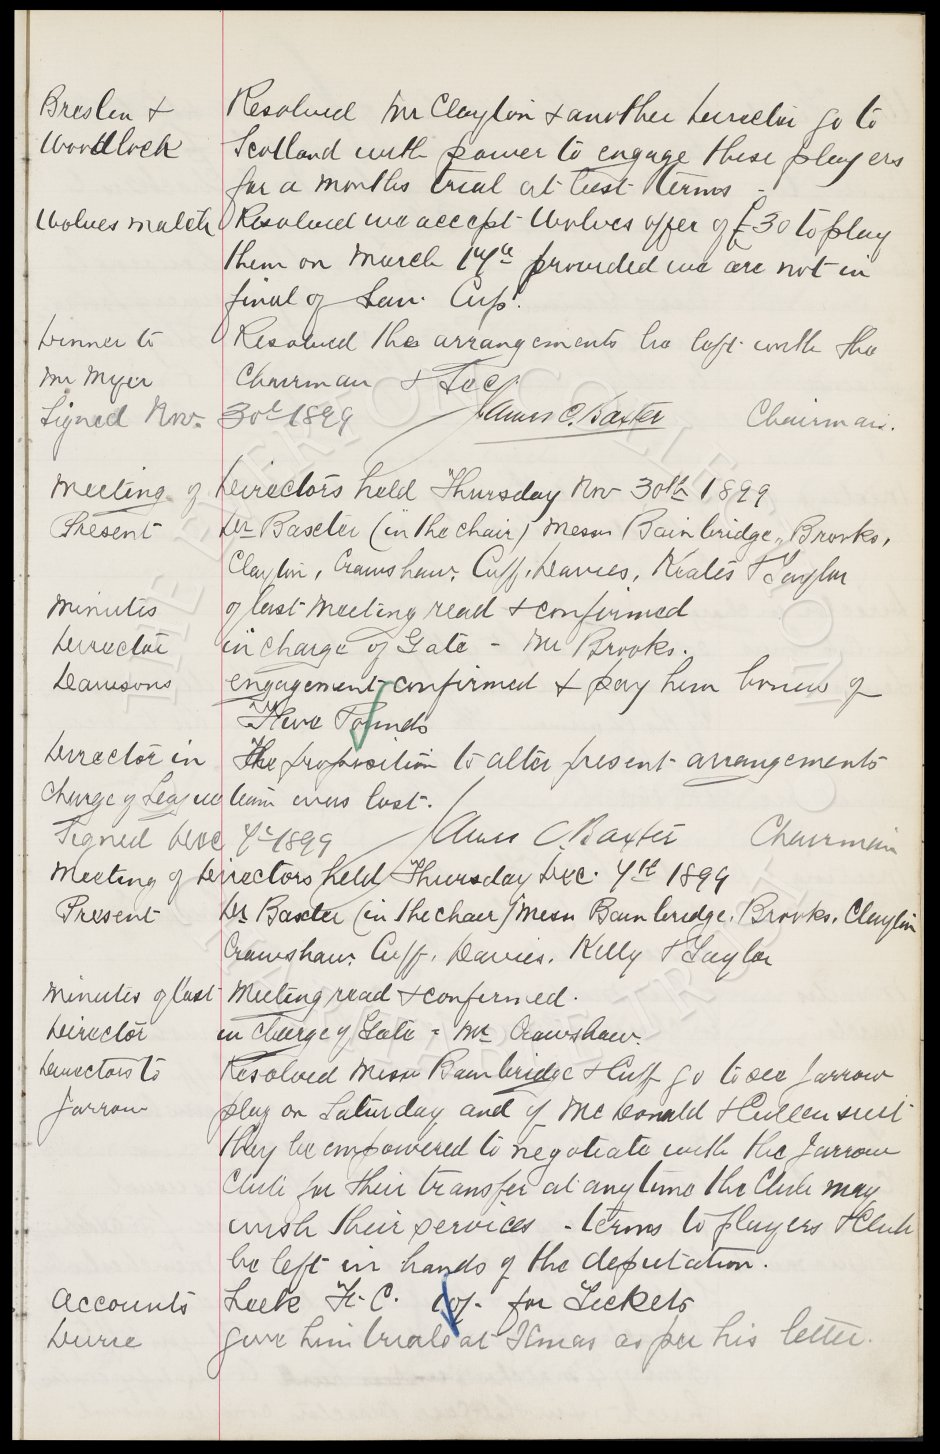 Breslin & Resolved Mr Clayton & another Director go to
Woodlock Scotland with power to engage these players
for a months trial at best terms -
Wolves match Resolved we accept Wolves offer of £30 to play
them on March 17th provided we are not in
final of Lan. Cup.
Dinner to Resolved the arrangements be left with the
Mr Myer Chairman & Sec
Signed Nov. 30th 1899 James C. Baxter Chairman.
Meeting of Directors held Thursday Nov 30th 1899
Present Dr Baxter (in the chair) Messrs Bainbridge, Brooks,
Clayton, Crawshaw, Cuff, Davies, Keates & Taylor
Minutes of last meeting read & confirmed
Director in charge of Gate - Mr Brooks.
Dawsons engagement confirmed & pay him bonus of
Five Pounds
Director in The proposition to alter present arrangements
charge of League team was lost.
Signed Dec 7th 1899 James C Baxter Chairman
Meeting of Directors held Thursday Dec. 7th 1899
Present Dr Baxter (in the chair) Messrs Bainbridge, Brooks, Clayton
Crawshaw, Cuff, Davies, Kelly & Taylor
Minutes of last Meeting read & confirmed.
Director in charge of Gate - Mr Crawshaw.
Directors to Resolved Messrs Bainbridge & Cuff go to see Jarrow
Jarrow play on Saturday and if McDonald & Cullen suit
they be empowered to negotiate with the Jarrow
Club for their transfer at any time the Club may
wish their services - terms to players & Club
be left in hands of the deputation.
Accounts Leek F. C. for Tickets
give him trials at Xmas as per his letter.
THE EVERTON COLLECTION
CHARITABLE TRUST